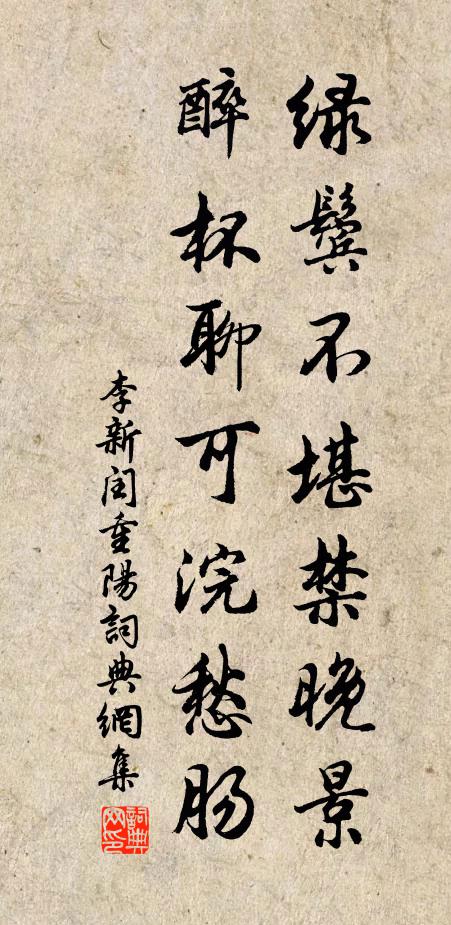 绿鬓不堪禁晚景
醉杯聊可浣愁肠
李新闰重陽詞典網集
詞典
网印